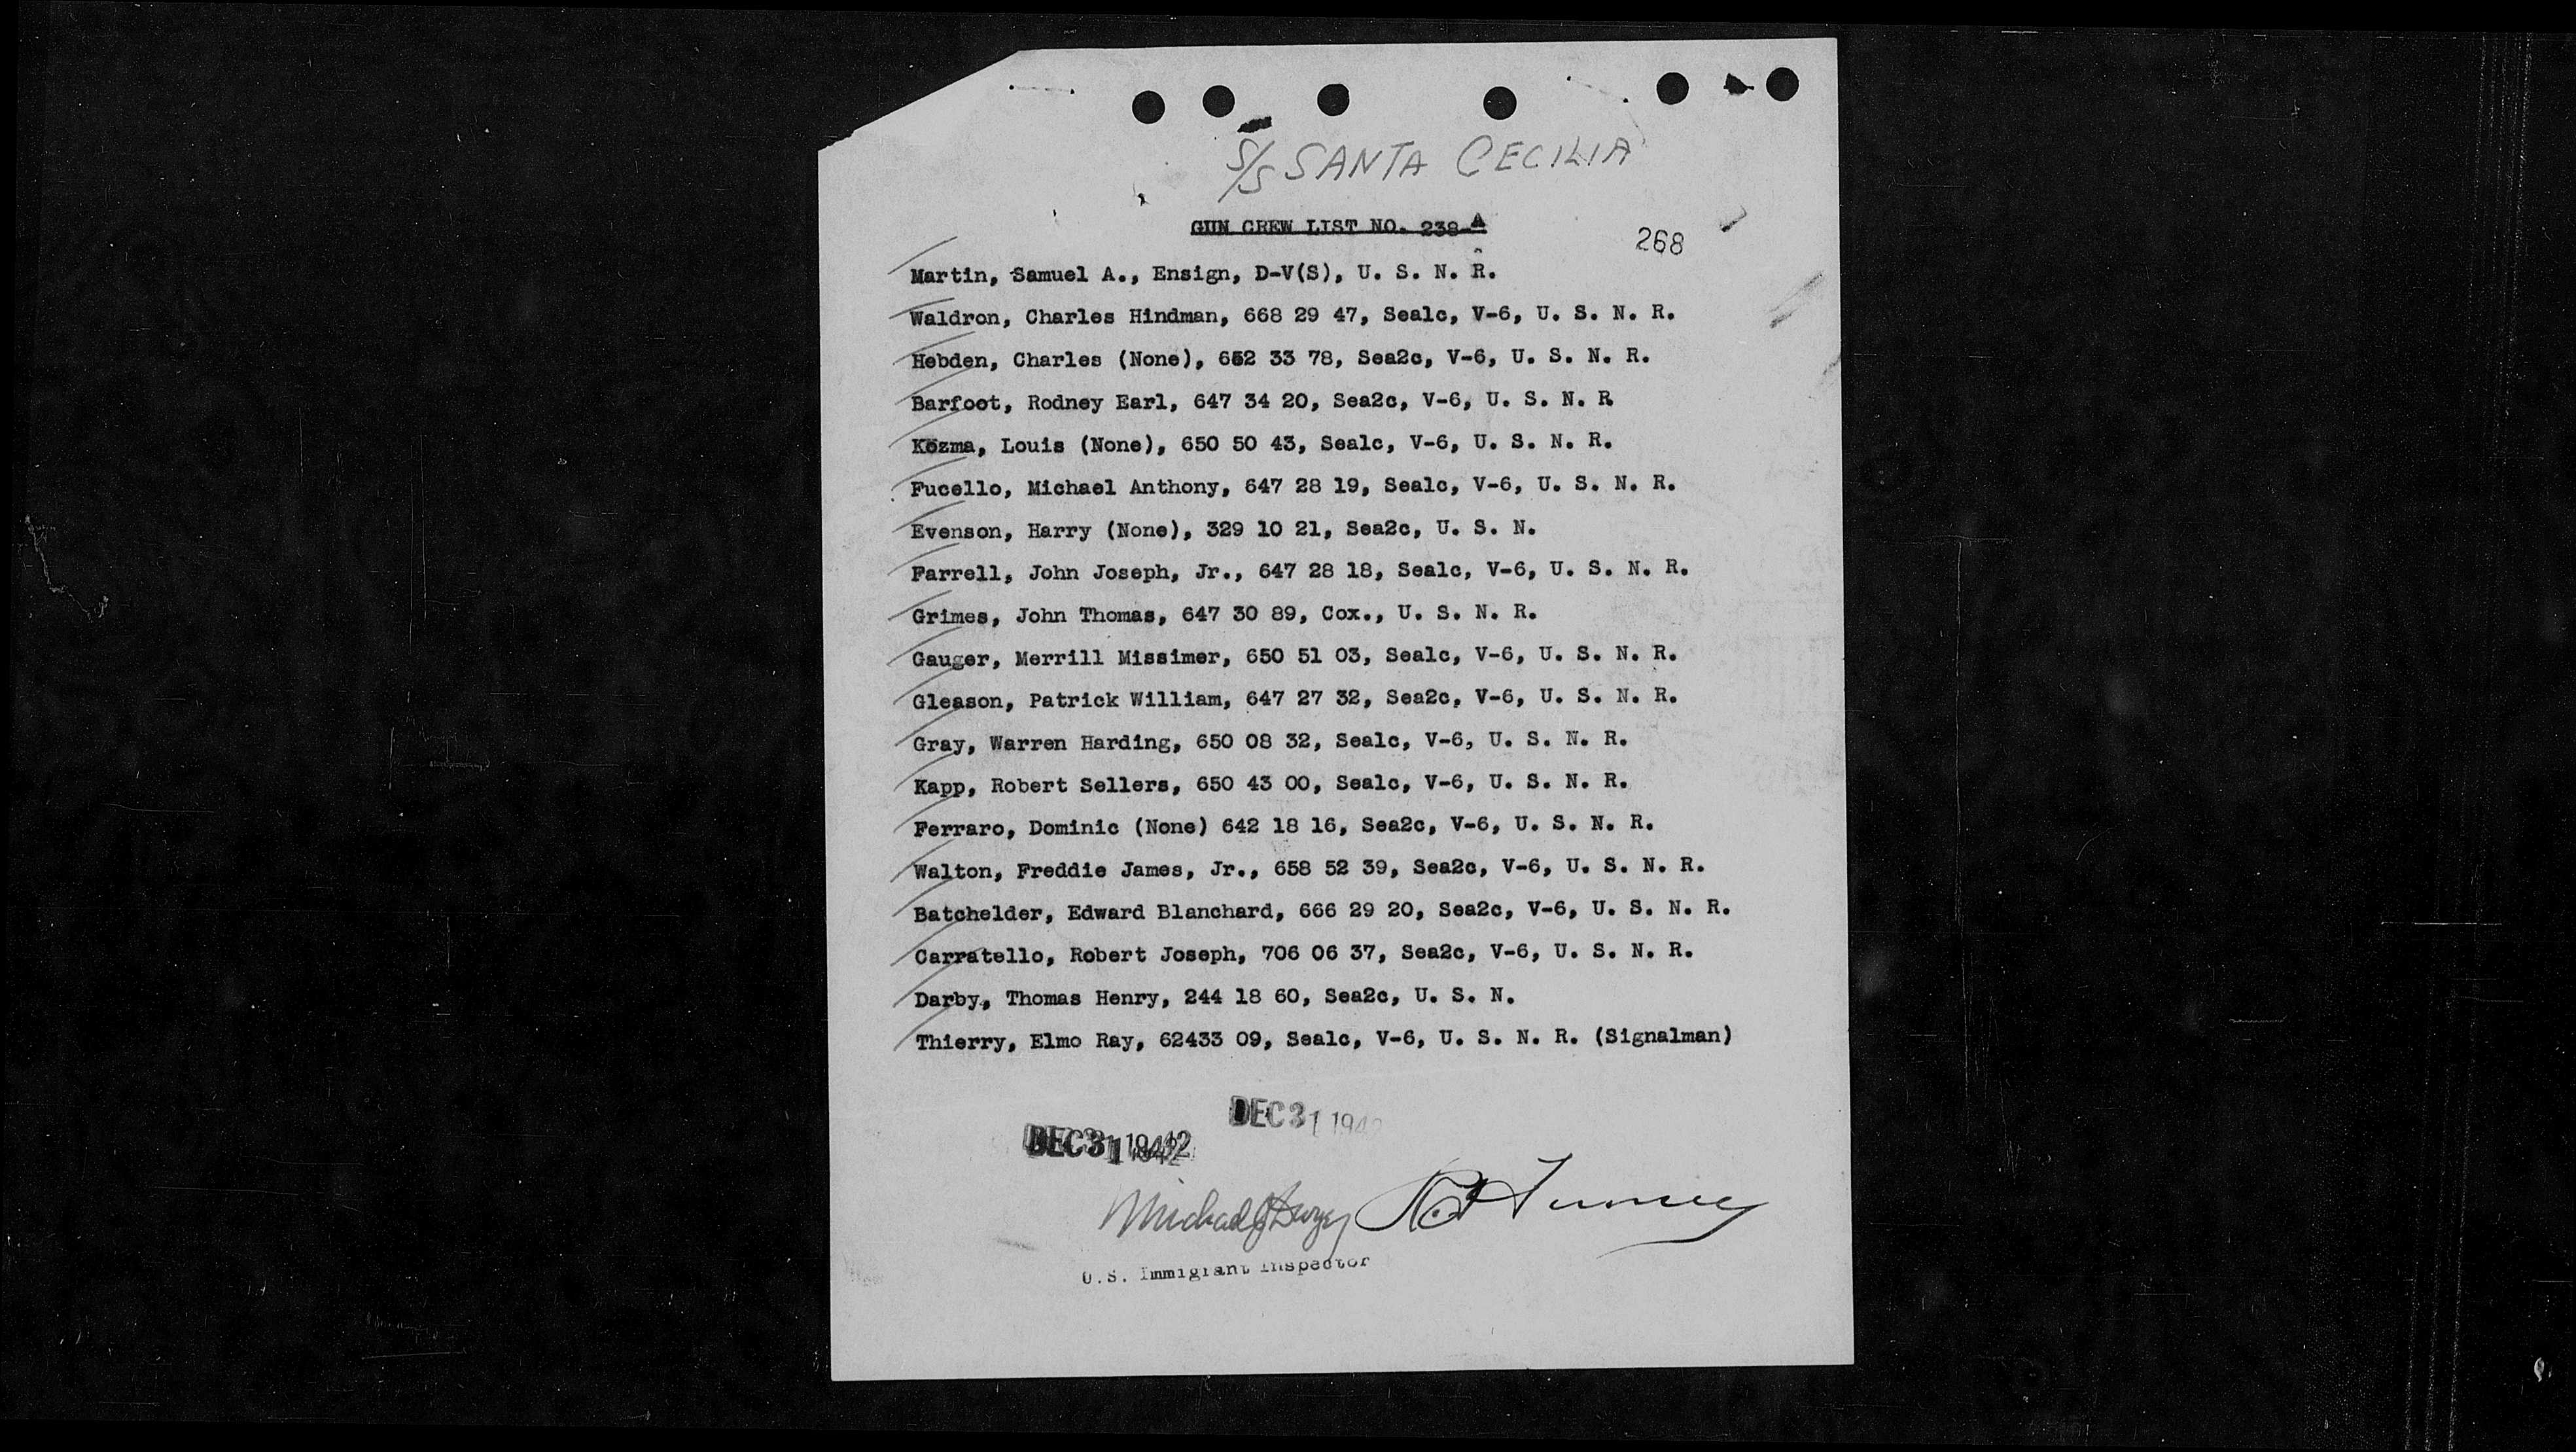 S/S SANTA CECILIA
GUN CREW LIST NO. 238-A
268
Martin, Samuel A., Ensign, D-V(S), U. S. N. R.
Waldron, Charles Hindman, 668 29 47, Sea1c, V-6, U. S. N. R.
Hebden, Charles (None), 652 33 78, Sea2c, V-6, U. S. N. R.
Barfoot, Rodney Earl, 647 34 20, Sea2c, V-6, U. S. N. R
Kozma, Louis (None), 650 50 43, Sea1c, V-6, U. S. N. R.
Fucello, Michael Anthony, 647 28 19, Sea1c, V-6, U. S. N. R.
Evenson, Harry (None), 329 10 21, Sea2c, U. S. N.
Farrell, John Joseph, Jr., 647 28 18, Sea1c, V-6, U. S. N. R.
Grimes, John Thomas, 647 30 89, Cox., U. S. N. R.
Gauger, Merrill Missimer, 650 51 03, Sea1c, V-6, U. S. N. R.
Gleason, Patrick William, 647 27 32, Sea2c, V-6, U. S. N. R.
Gray, Warren Harding, 650 08 32, Sea1c, V-6, U. S. N. R.
Kapp, Robert Sellers, 650 43 00, Sea1c, V-6, U. S. N. R.
Ferraro, Dominic (None) 642 18 16, Sea2c, V-6, U. S. N. R.
Walton, Freddie James, Jr., 658 52 39, Sea2c, V-6, U. S. N. R.
Batchelder, Edward Blanchard, 666 29 20, Sea2c, V-6, U. S. N. R.
Carratello, Robert Joseph, 706 06 37, Sea2c, V-6, U. S. N. R.
Darby, Thomas Henry, 244 18 60, Sea2c, U. S. N.
Thierry, Elmo Ray, 62433 09, Sea1c, V-6, U. S. N. R. (Signalman)
DEC 31 1942
DEC 31 1942
Michael J Dwyer
U.S. Immigrant Inspector